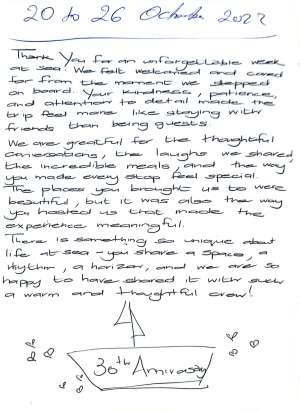 20 to 26 October 2022
Thank You for an unforgettable week
at sea. We felt welcomed and cared
for from the moment we stepped
on board. Your kindness, patience,
and attention to detail made the
trip feel more like staying with
friends than being guests
We are greatful for the thoughtful
conversations, the laughs we shared
the incredible meals, and the way
you made every stop feel special.
The places you brought us to were
beautiful, but it was also the way
you hosted us that made the
experience meaningful.
There is something so unique about
life at sea - you share a space, a
rhythm, a horizon, and we are so
happy to have shared it with such
a warm and thoughtful crew!
30th Anniversary